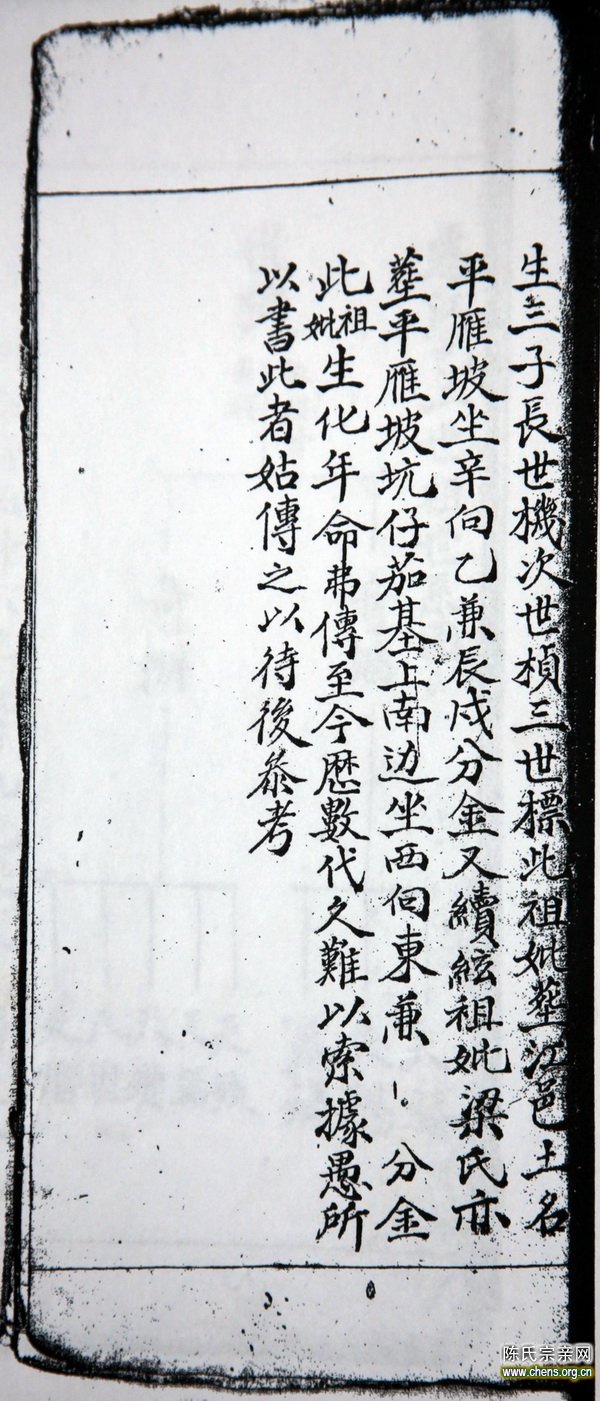 生三子長世機次世楨三世標此祖妣塟江邑土名
平雁坡坐辛向乙兼辰戌分金又續絃祖妣梁氏亦
塟平雁坡坑仔茄基上南边坐西向東兼 分金
此祖妣生化年命弗傳至今歷數代久難以索據愚所
以書此者姑傳之以待後叅考
陈氏宗亲网
www.chens.org.cn